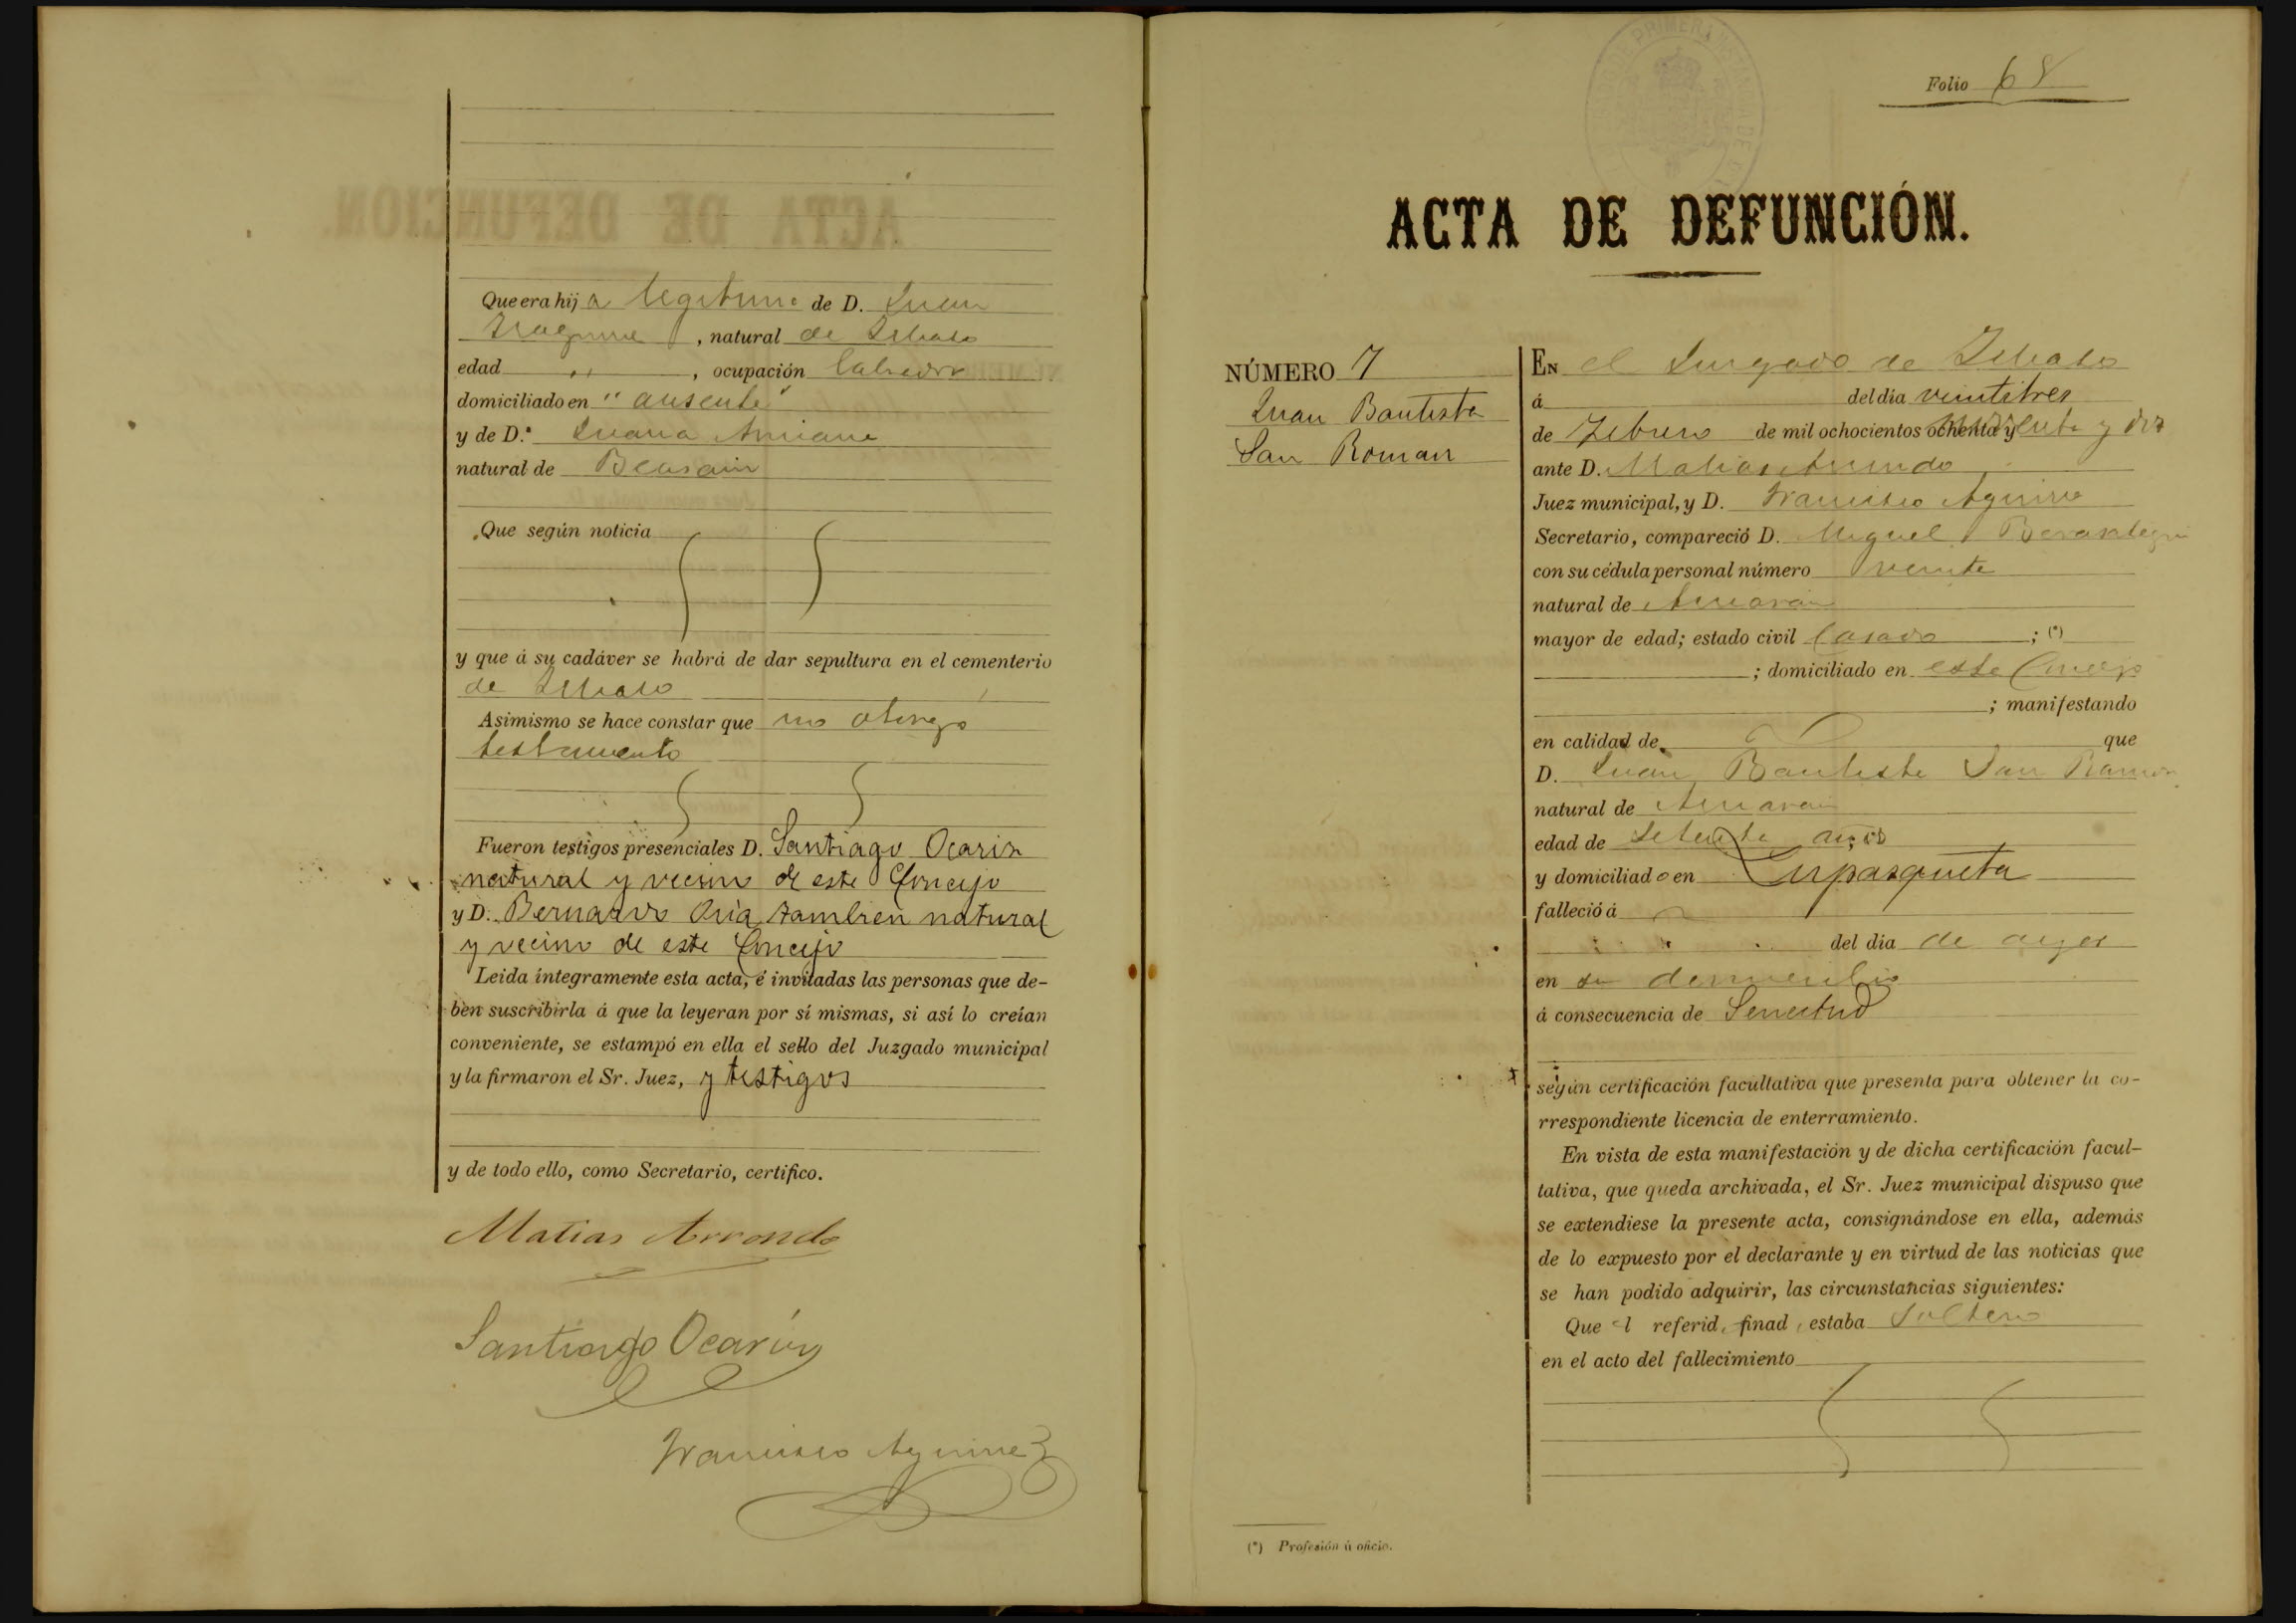 Que era hija legitima de D. Juan
, natural de
edad " , ocupación labrador
domiciliado en " ausente "
y de D.ª Juana
natural de Beasain
Que según noticia
y que á su cadáver se habrá de dar sepultura en el cementerio
de
Asimismo se hace constar que no otorgó
testamento
Fueron testigos presenciales D. Santiago Ocariz
natural y vecino de este Concejo
y D. Bernardo Oria tambien natural
y vecino de este Concejo
Leida íntegramente esta acta, é invitadas las personas que de-
ben suscribirla á que la leyeran por sí mismas, si así lo creían
conveniente, se estampó en ella el sello del Juzgado municipal
y la firmaron el Sr. Juez, y testigos
y de todo ello, como Secretario, certifico.
Matias Arrondo
Santiago Ocariz
Francisco Aguirre
Folio 68
ACTA DE DEFUNCIÓN.
NÚMERO 7
Juan Bautista
San Roman
EN el Juzgado de
á del dia veintitres
de Febrero de mil ochocientos ochenta y noventa y dos
ante D. Matias Arrondo
Juez municipal, y D. Francisco Aguirre
Secretario, compareció D. Miguel Berasategui
con su cédula personal número veinte
natural de
mayor de edad; estado civil Casado ; (*)
; domiciliado en este Concejo
; manifestando
en calidad de que
D. Juan Bautista San Roman
natural de
edad de setenta años
y domiciliado en
falleció á
del dia de ayer
en su domicilio
á consecuencia de Senectud
según certificación facultativa que presenta para obtener la co-
rrespondiente licencia de enterramiento.
En vista de esta manifestación y de dicha certificación facul-
tativa, que queda archivada, el Sr. Juez municipal dispuso que
se extendiese la presente acta, consignándose en ella, además
de lo expuesto por el declarante y en virtud de las noticias que
se han podido adquirir, las circunstancias siguientes:
Que el referid finad estaba Soltero
en el acto del fallecimiento
(*) Profesión ú oficio.